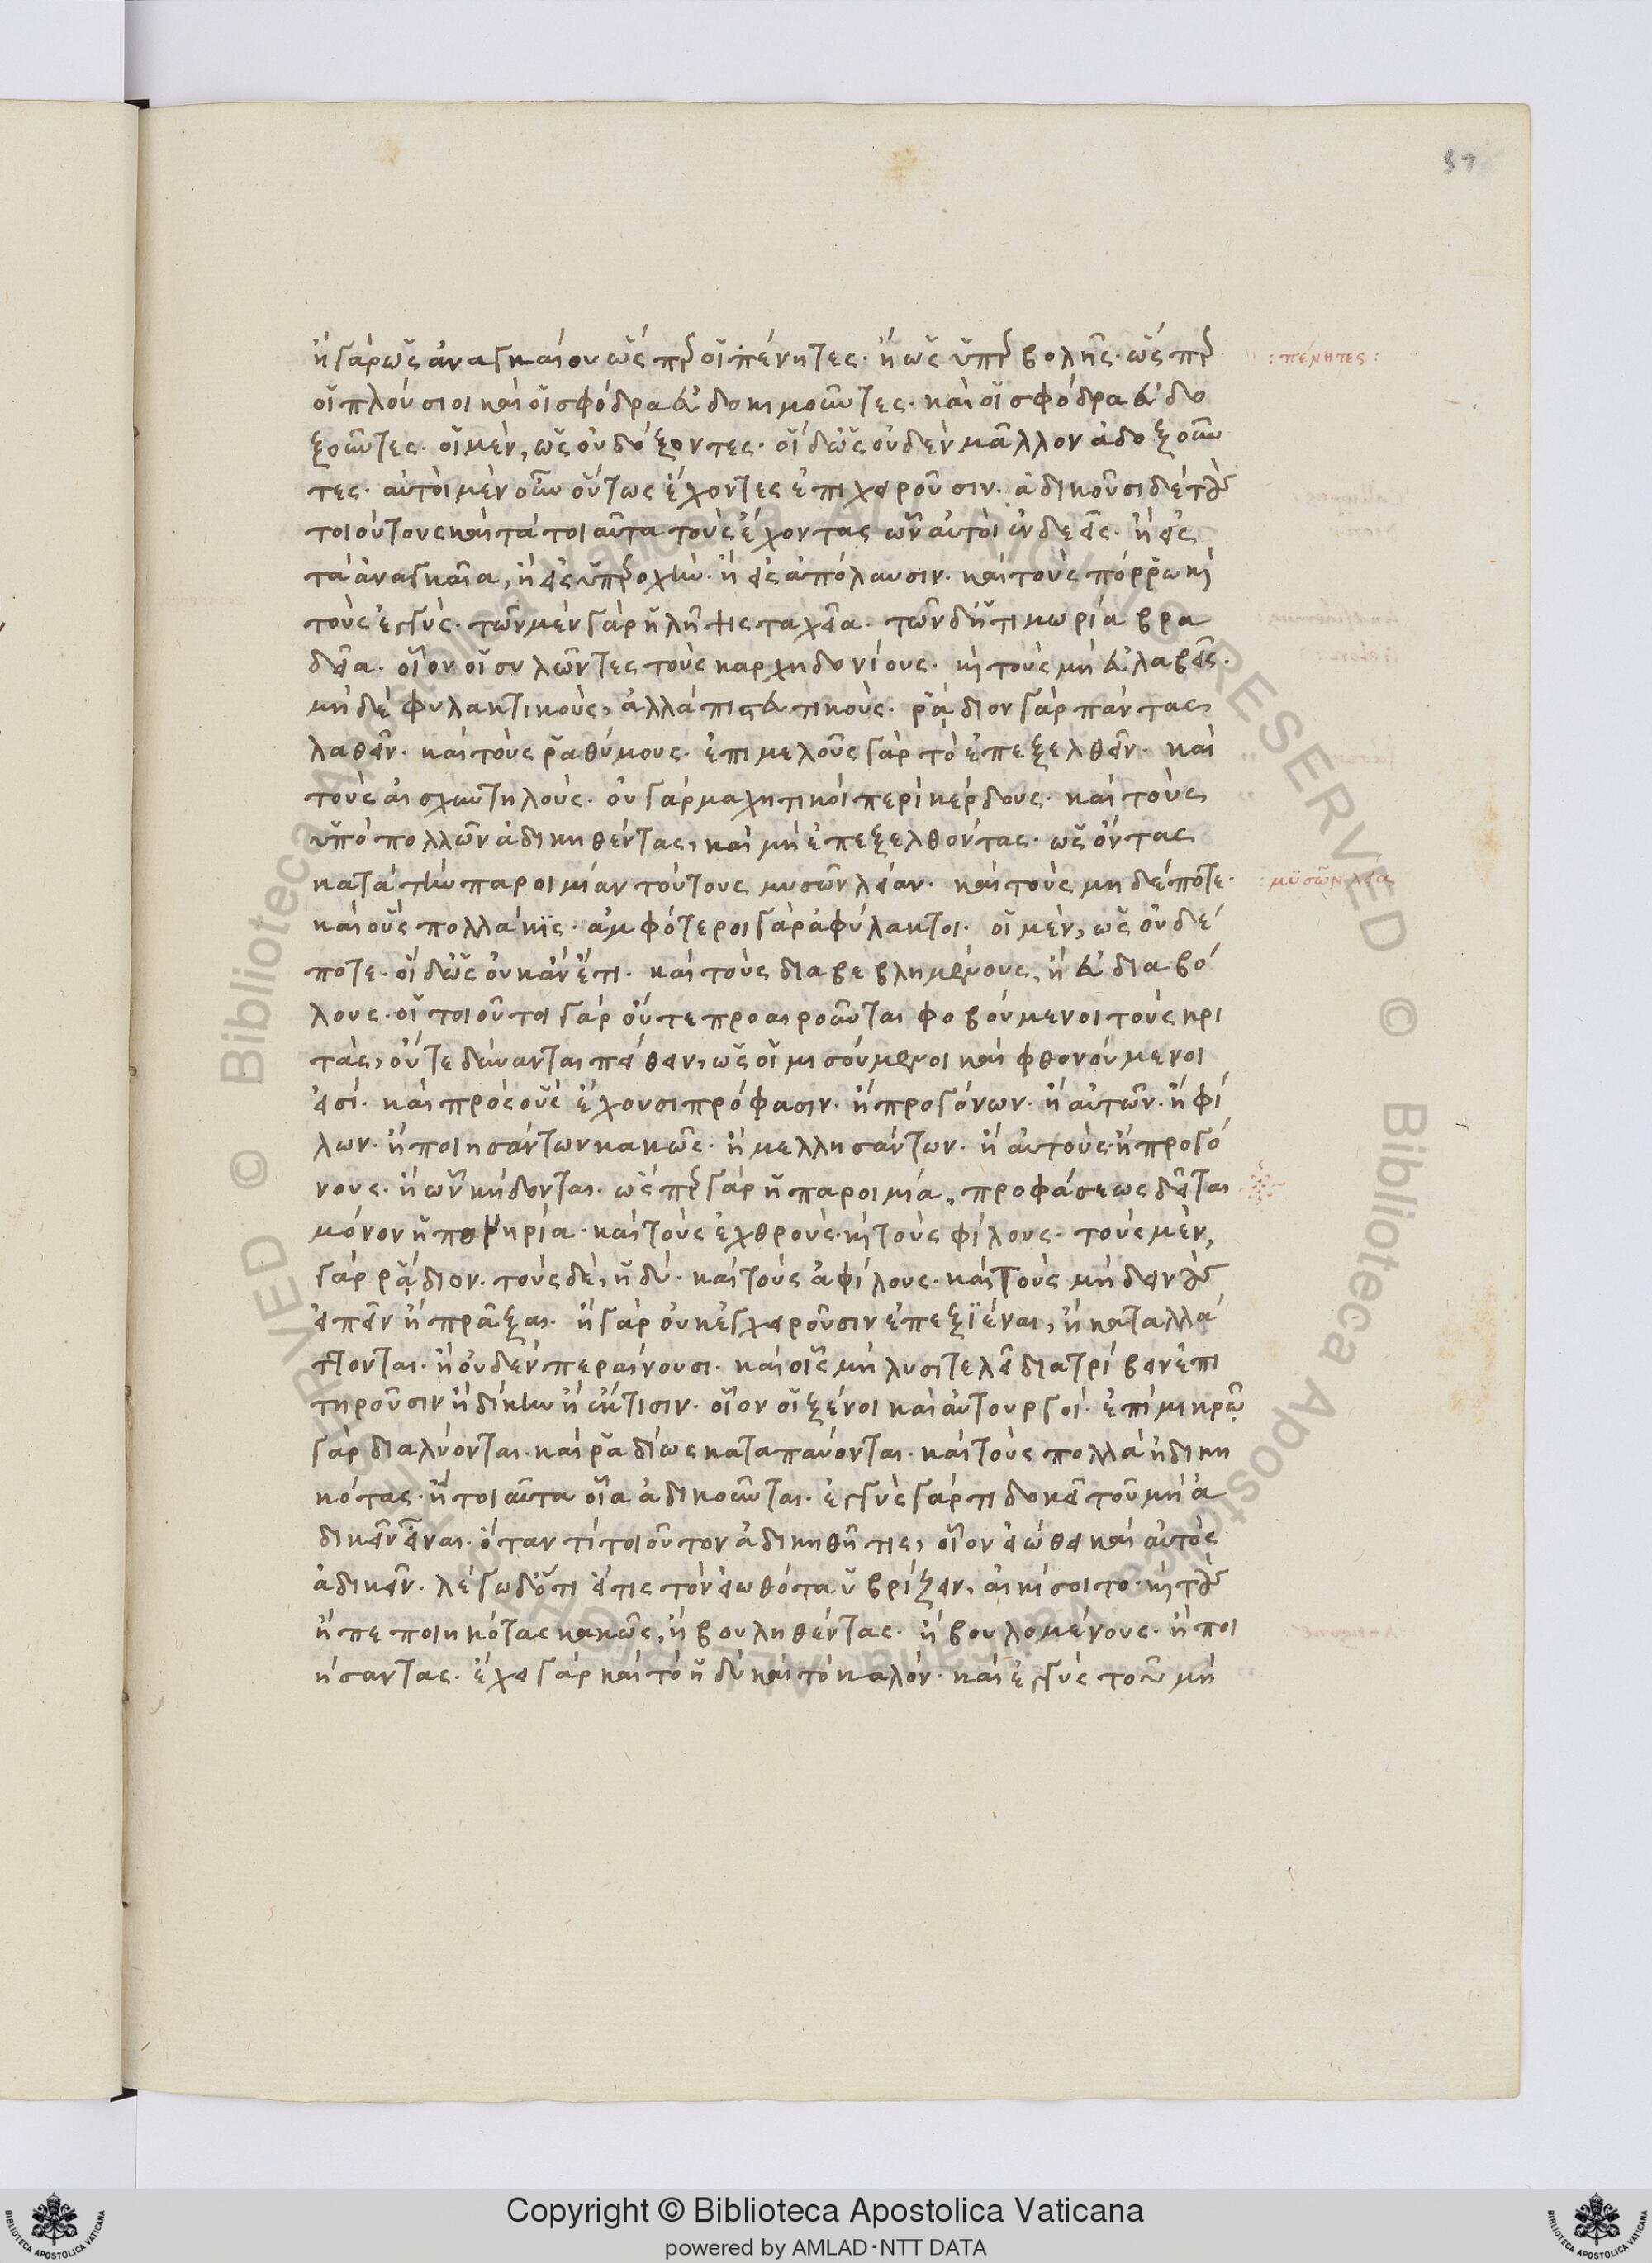 57
ἢ γὰρ ὡς ἀναγκαίου ὥσπερ οἱ πένητες· ἢ ὡς ὑπερβολῆς· ὥσπερ
: πένητες :
οἱ πλούσιοι καὶ οἱ σφόδρα εὐδοκιμοῦντες· καὶ οἱ σφόδρα εὐδο
ξοῦντες· οἱ μὲν, ὡς οὐ δόξοντες· οἱ δ' ὡς οὐδὲν μᾶλλον ἀδοξοῦν
τες· αὐτοὶ μὲν οὖν οὕτως ἔχοντες ἐπιχειροῦσιν· ἀδικοῦσι δὲ τοὺς
τοιούτους καὶ τὰ τοιαῦτα τοὺς ἔχοντας ὧν αὐτοὶ ἐνδεεῖς· ἢ εἰς
τὰ ἀναγκαῖα, ἢ εἰς ὑπεροχὴν· ἢ εἰς ἀπόλαυσιν· καὶ τοὺς πόρρω καὶ
τοὺς ἐγγύς· τῶν μὲν γὰρ ἡ λῆψις ταχεῖα· τῶν δ' ἡ τιμωρία βρα
δεῖα· οἷον οἱ συλῶντες τοὺς καρχηδονίους· καὶ τοὺς μὴ εὐλαβεῖς·
μὴ δὲ φυλακτικοὺς, ἀλλὰ πιστευτικούς· ῥᾴδιον γὰρ πάντας
λαθεῖν· καὶ τοὺς ῥαθύμους· ἐπιμελοῦς γὰρ τὸ ἐπεξελθεῖν· καὶ
τοὺς αἰσχυντηλούς· οὐ γὰρ μαχητικοὶ περὶ κέρδους· καὶ τοὺς
ὑπὸ πολλῶν ἀδικηθέντας, καὶ μὴ ἐπεξελθόντας· ὡς ὄντας
κατὰ τὴν παροιμίαν τούτους μυσῶν λείαν· καὶ τοὺς μηδέποτε·
: μϋσῶν λεία
καὶ οὓς πολλάκις· ἀμφότεροι γὰρ ἀφύλακτοι· οἱ μὲν, ὡς οὐδέ
ποτε· οἱ δ' ὡς οὐκ ἂν ἔτι· καὶ τοὺς διαβεβλημένους, ἢ εὐδιαβό
λους· οἱ τοιοῦτοι γὰρ οὔτε προαιροῦνται φοβούμενοι τοὺς κρι
τὰς, οὔτε δύνανται πείθειν, ὡς οἱ μισούμενοι καὶ φθονούμενοι
εἰσί· καὶ πρὸς οὓς ἔχουσι πρόφασιν· ἢ προγόνων· ἢ αὐτῶν· ἢ φί
λων· ἢ ποιησάντων κακῶς· ἢ μελλησάντων· ἢ αὐτοὺς· ἢ προγό
νους· ἢ ὧν κήδονται· ὥσπερ γὰρ ἡ παροιμία, προφάσεως δεῖται
μόνον ἡ πονηρία· καὶ τοὺς ἐχθροὺς· καὶ τοὺς φίλους· τοὺς μὲν,
γὰρ ῥᾴδιον· τοὺς δὲ, ἡδύ· καὶ τοὺς ἀφίλους· καὶ τοὺς μὴ δεινοὺς
εἰπεῖν ἢ πρᾶξαι· ἢ γὰρ οὐκ ἐγχειροῦσιν ἐπεξϊέναι, ἢ καταλλά
ττονται· ἢ οὐδὲν περαίνουσι· καὶ οἷς μὴ λυσιτελεῖ διατρίβειν ἐπι
τηροῦσιν ἢ δίκην ἢ ἔκτισιν· οἷον οἱ ξένοι καὶ αὐτουργοί· ἐπὶ μικρῷ
γὰρ διαλύονται· καὶ ῥᾳδίως καταπαύονται· καὶ τοὺς πολλὰ ἠδικη
κότας· ἢ τοιαῦτα οἷα ἀδικοῦνται· ἐγγὺς γάρ τι δοκεῖ τοῦ μὴ ἀ
δικεῖν εἶναι· ὅταν τὶ τοιοῦτον ἀδικηθῇ τις, οἷον εἰώθει καὶ αὐτὸς
ἀδικεῖν· λέγω δ' ὅτι εἴ τις τὸν εἰωθότα ὑβρίζειν, αἰκίσοιτο· καὶ τοὺς
ἢ πεποιηκότας κακῶς, ἢ βουληθέντας· ἢ βουλομένους· ἢ ποι
ήσαντας· ἔχει γὰρ καὶ τὸ ἡδὺ καὶ τὸ καλόν· καὶ ἐγγὺς τοῦ μὴ
Copyright © Biblioteca Apostolica Vaticana
powered by AMLAD·NTT DATA